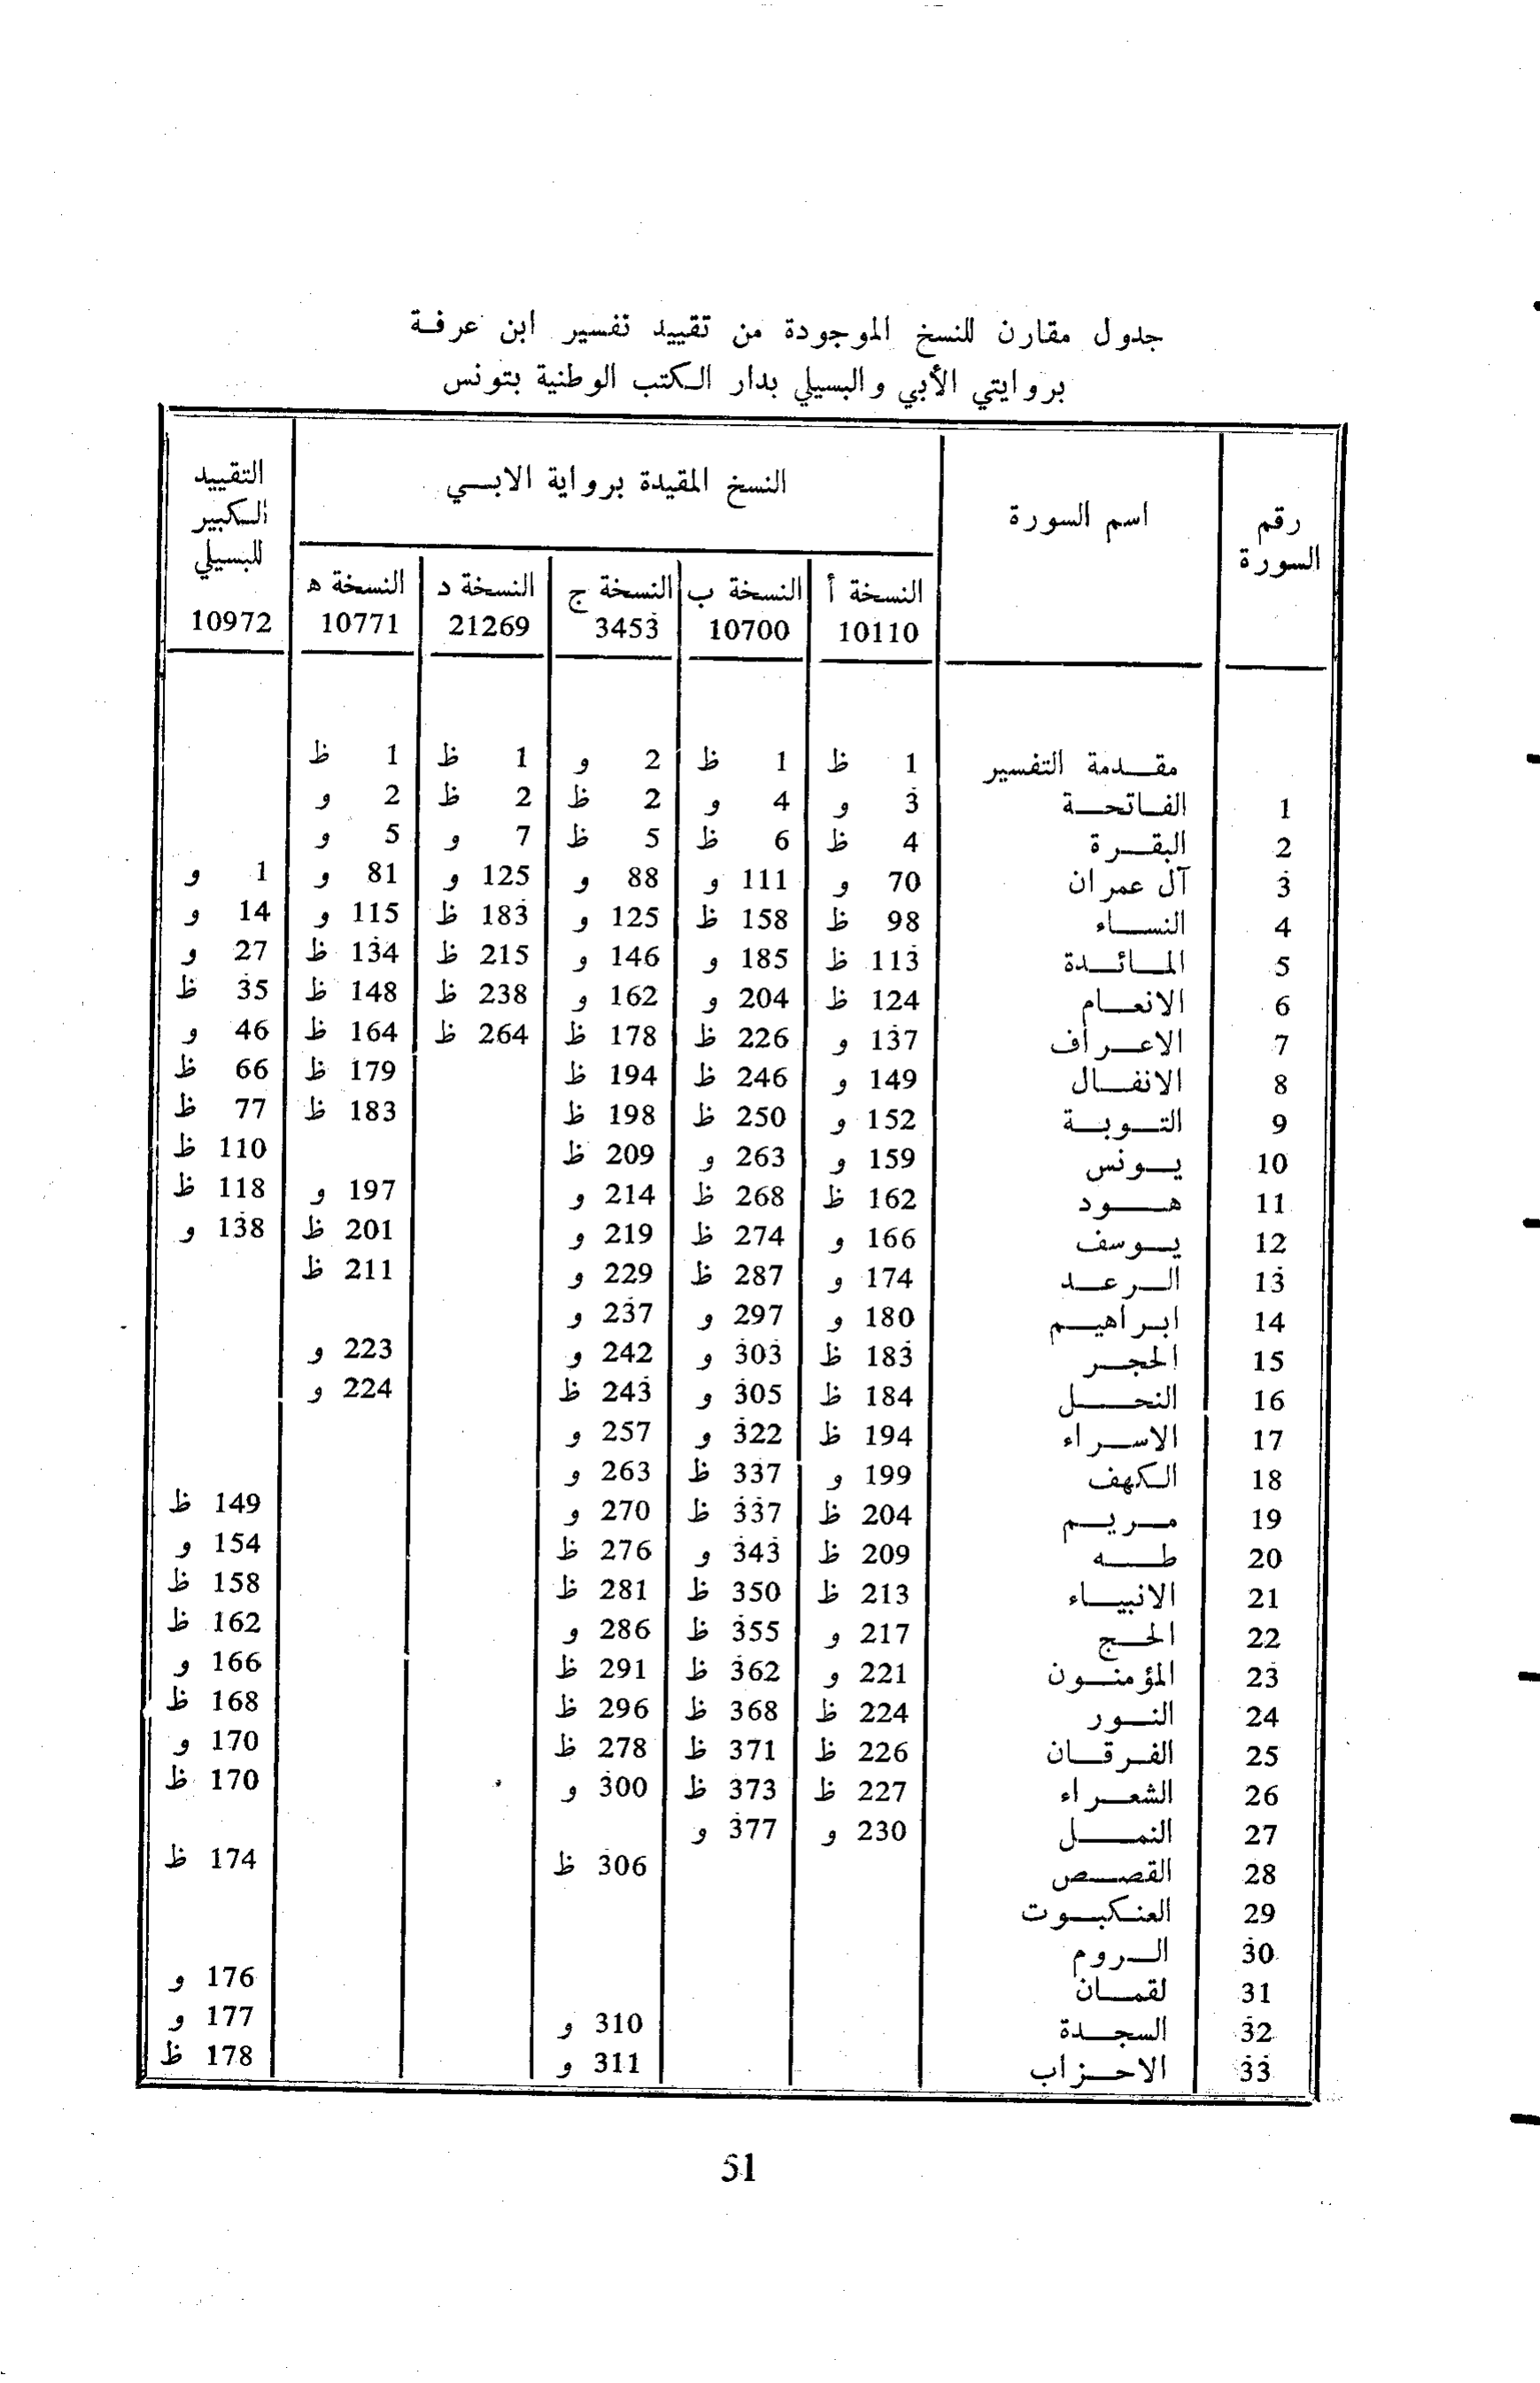 جدول مقارن للنسخ الموجودة من تقييد تفسير ابن عرفة
بروايتي الأبي والبسيلي بدار الكتب الوطنية بتونس
رقم السورة | اسم السورة | النسخ المقيدة برواية الابي | التقييد الكبير للبسيلي
النسخة أ | النسخة ب | النسخة ج | النسخة د | النسخة ه
10110 | 10700 | 3453 | 21269 | 10771 | 10972
مقدمة التفسير | 1 ظ | 1 ظ | 2 و | 1 ظ | 1 ظ |
1 | الفاتحة | 3 و | 4 و | 2 ظ | 2 ظ | 2 و |
2 | البقرة | 4 ظ | 6 ظ | 5 ظ | 7 و | 5 و |
3 | آل عمران | 70 و | 111 و | 88 و | 125 و | 81 و | 1 و
4 | النساء | 98 ظ | 158 ظ | 125 و | 183 ظ | 115 و | 14 و
5 | المائدة | 113 ظ | 185 و | 146 و | 215 ظ | 134 ظ | 27 و
6 | الانعام | 124 ظ | 204 و | 162 و | 238 ظ | 148 ظ | 35 ظ
7 | الاعراف | 137 و | 226 ظ | 178 ظ | 264 ظ | 164 ظ | 46 و
8 | الانفال | 149 و | 246 ظ | 194 ظ | | 179 ظ | 66 ظ
9 | التوبة | 152 و | 250 ظ | 198 ظ | | 183 ظ | 77 ظ
10 | يونس | 159 و | 263 و | 209 ظ | | | 110 ظ
11 | هود | 162 ظ | 268 ظ | 214 و | | 197 و | 118 ظ
12 | يوسف | 166 و | 274 ظ | 219 و | | 201 ظ | 138 و
13 | الرعد | 174 و | 287 ظ | 229 و | | 211 ظ |
14 | ابراهيم | 180 و | 297 و | 237 و | | |
15 | الحجر | 183 ظ | 303 و | 242 و | | 223 و |
16 | النحل | 184 ظ | 305 و | 243 ظ | | 224 و |
17 | الاسراء | 194 ظ | 322 و | 257 و | | |
18 | الكهف | 199 و | 337 ظ | 263 و | | |
19 | مريم | 204 ظ | 337 ظ | 270 و | | | 149 ظ
20 | طه | 209 ظ | 343 و | 276 ظ | | | 154 و
21 | الانبياء | 213 ظ | 350 ظ | 281 ظ | | | 158 ظ
22 | الحج | 217 و | 355 ظ | 286 و | | | 162 ظ
23 | المؤمنون | 221 و | 362 ظ | 291 ظ | | | 166 و
24 | النور | 224 ظ | 368 ظ | 296 ظ | | | 168 ظ
25 | الفرقان | 226 ظ | 371 ظ | 278 ظ | | | 170 و
26 | الشعراء | 227 ظ | 373 ظ | 300 و | | | 170 ظ
27 | النمل | 230 و | 377 و | | | |
28 | القصص | | | 306 ظ | | | 174 ظ
29 | العنكبوت
30 | الروم
31 | لقمان | | | | | | 176 و
32 | السجدة | | | 310 و | | | 177 و
33 | الاحزاب | | | 311 و | | | 178 ظ
51